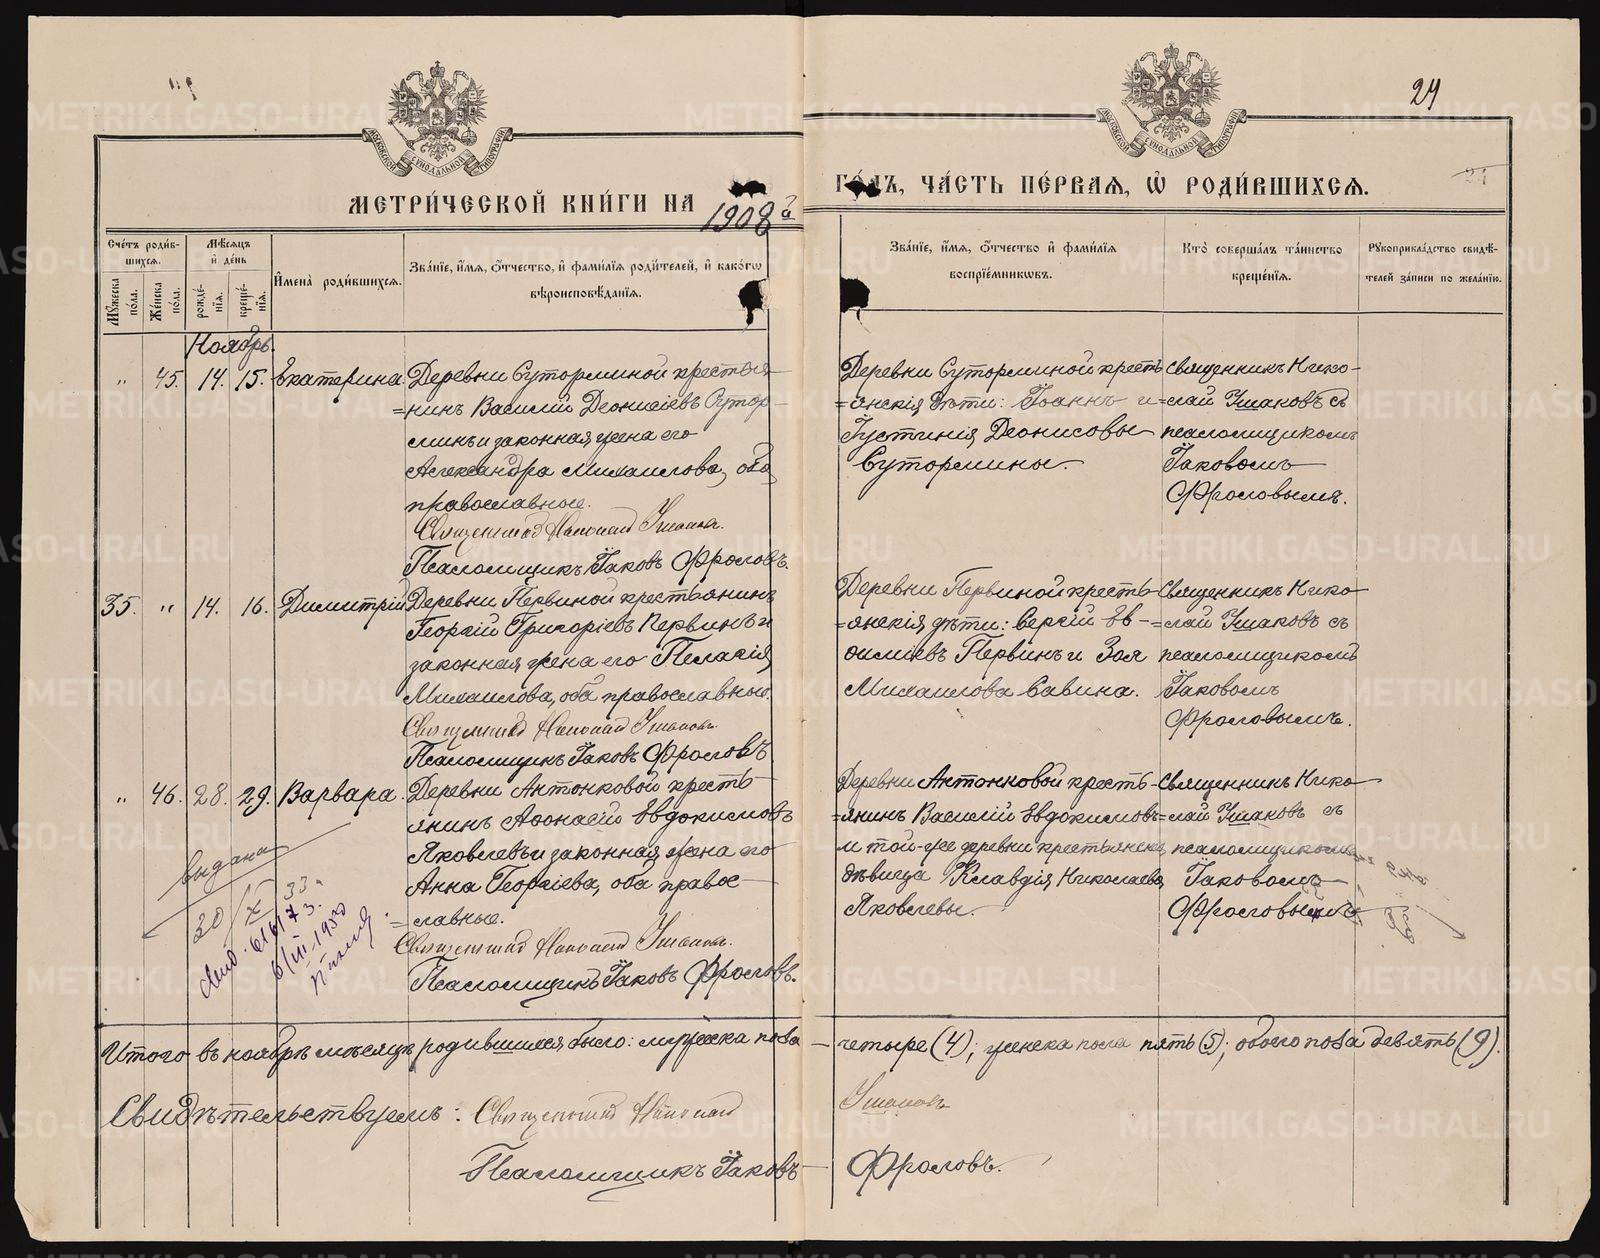 24
МЕТРИ́ЧЕСКОЙ КНИ́ГИ НА 1908й ГО́ДЪ, ЧА́СТЬ ПЕ́РВАЯ, Ѡ҆ РОДИ́ВШИХСЯ.
Сче́тъ роди́в-
шихся.
Мѣ́сяцъ
и҆ де́нь
Мꙋ́жеска
по́ла.
Же́нска
по́ла.
рожде́-
нїя.
креще́-
нїя.
И҆мена̀ роди́вшихся.
Зва́нїе, и҆́мя, ѻ҆́тчество, и҆ фами́лїя роди́телей, и҆ како́гѡ
вѣроисповѣ́данїя.
Зва́нїе, и҆́мя, ѻ҆́тчество и҆ фами́лїя
воспрїе́мникѡвъ.
Кто̀ соверша́лъ та́инство
креще́нїя.
Рꙋкоприкла́дство свидѣ́-
телей за́писи по жела́нїю.
Ноябрь.
" 45. 14. 15. Екатерина.
Деревни Суторминой крестья-
=нинъ Василій Деонисіевъ Сутор-
минъ и законная жена его
Александра Михаилова, оба
православные.
Священникъ Николай Ушаковъ.
Псаломщикъ Іаковъ Фроловъ.
Деревни Суторминой кресть-
=янскія дѣти: Іоаннъ и
Іустинія Деонисовы
Сутормины.
Священникъ Нико-
=лай Ушаковъ съ
псаломщикомъ
Іаковомъ
Фроловымъ.
35. " 14. 16. Димитрій
Деревни Первиной крестьянинъ
Георгій Григоріевъ Первинъ и
законная жена его Пелагія
Михаилова, оба православные.
Священникъ Николай Ушаковъ.
Псаломщикъ Іаковъ Фроловъ
Деревни Первиной кресть-
=янскія дѣти: Сергій Ев-
ѳиміевъ Первинъ и Зоя
Михаилова Савина.
Священникъ Нико-
=лай Ушаковъ съ
псаломщикомъ
Іаковомъ
Фроловымъ.
" 46. 28. 29. Варвара.
Деревни Антонковой кресть-
янинъ Аѳонасій Евдокимовъ
Яковлевъ и законная жена его
Анна Георгіева, оба право-
=славные.
Священникъ Николай Ушаковъ.
Псаломщикъ Іаковъ Фроловъ.
Деревни Антонковой кресть-
=янинъ Василій Евдокимовъ
и той-же деревни крестьянская
дѣвица Клавдія Николаева
Яковлевы.
Священникъ Нико-
=лай Ушаковъ съ
псаломщикомъ
Іаковомъ
Фроловымъ
выдана
30/X 33 г.
Итого въ ноябрѣ мѣсяцѣ родившихся было: мужеска пола — четыре (4); женска пола пять (5); обоего пола девять (9).
Свидѣтельствуемъ: Священникъ Николай Ушаковъ
Псаломщикъ Іаковъ Фроловъ.
METRIKI.GASO-URAL.RU